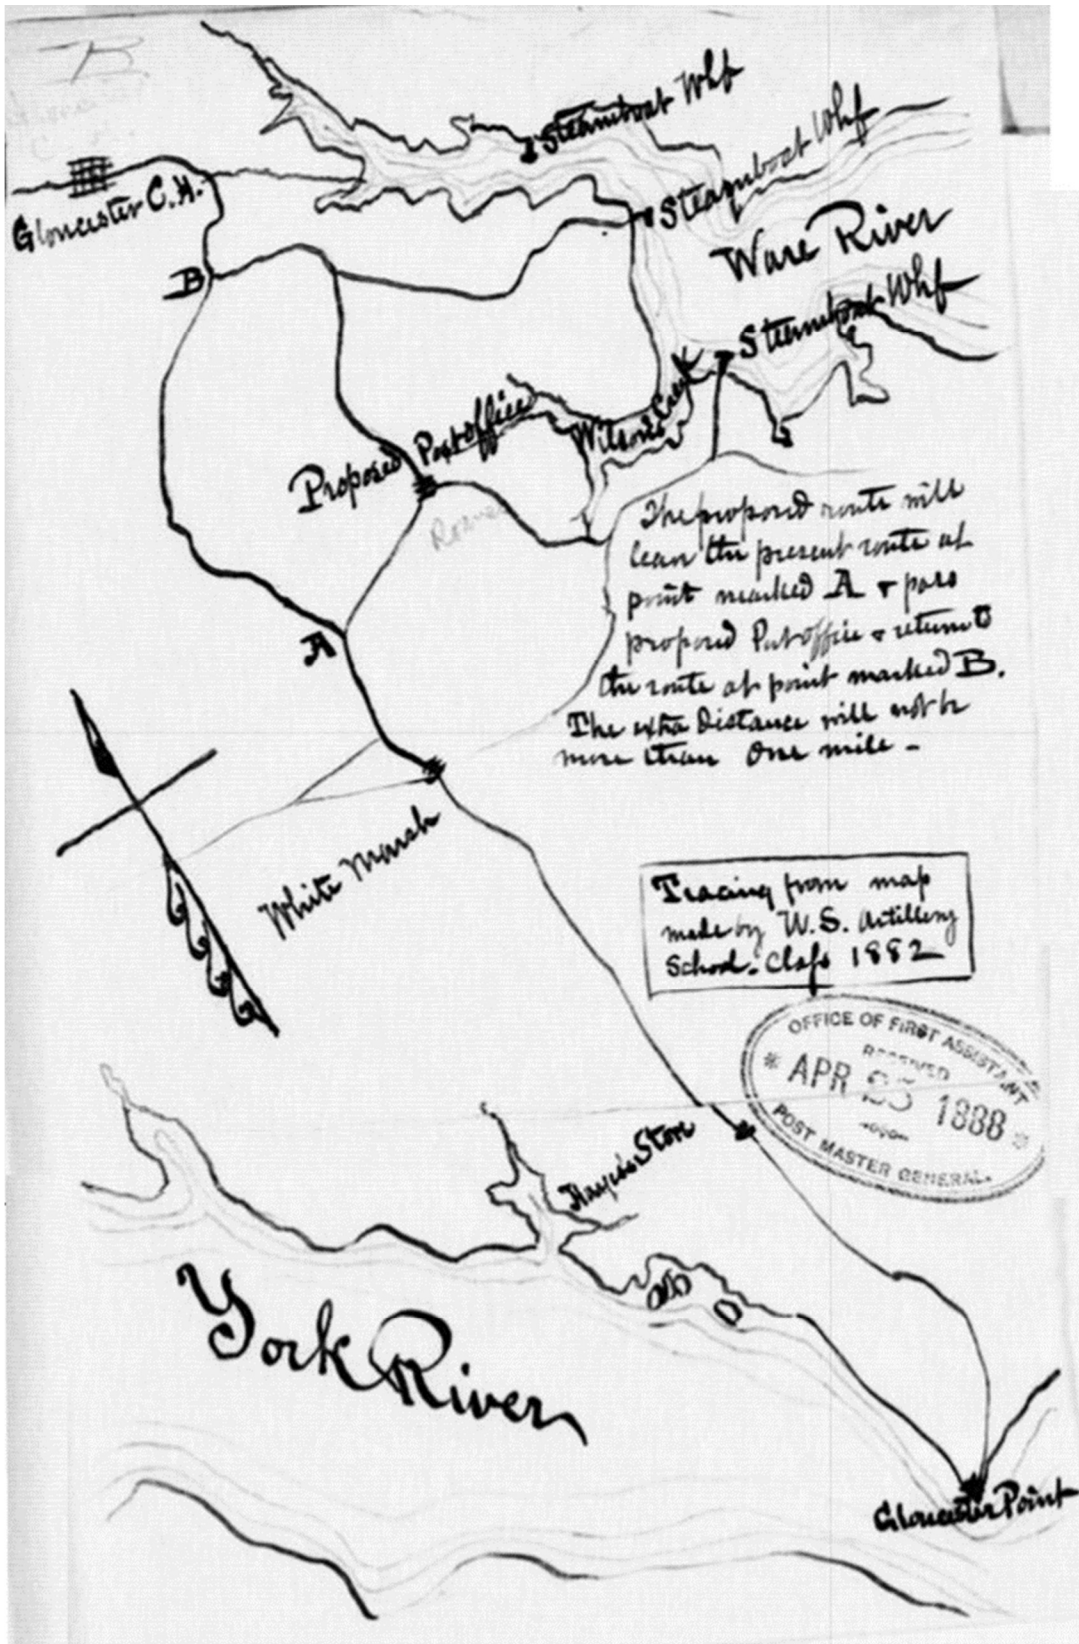 B
Steamboat Whf
Steamboat Whf
Gloucester C.H.
Ware River
B
Steamboat Whf
Wilson's Creek
Proposed Post office
The proposed route will
leave the present route at
point marked A & pass
proposed Post office & return to
the route at point marked B.
The extra Distance will not be
more than One mile -
A
White Marsh
Tracing from map
made by U.S. Artillery
School. Class 1882
OFFICE OF FIRST ASSISTANT
RECEIVED
APR 25 1888
POST MASTER GENERAL.
Hayes Store
York River
Gloucester Point